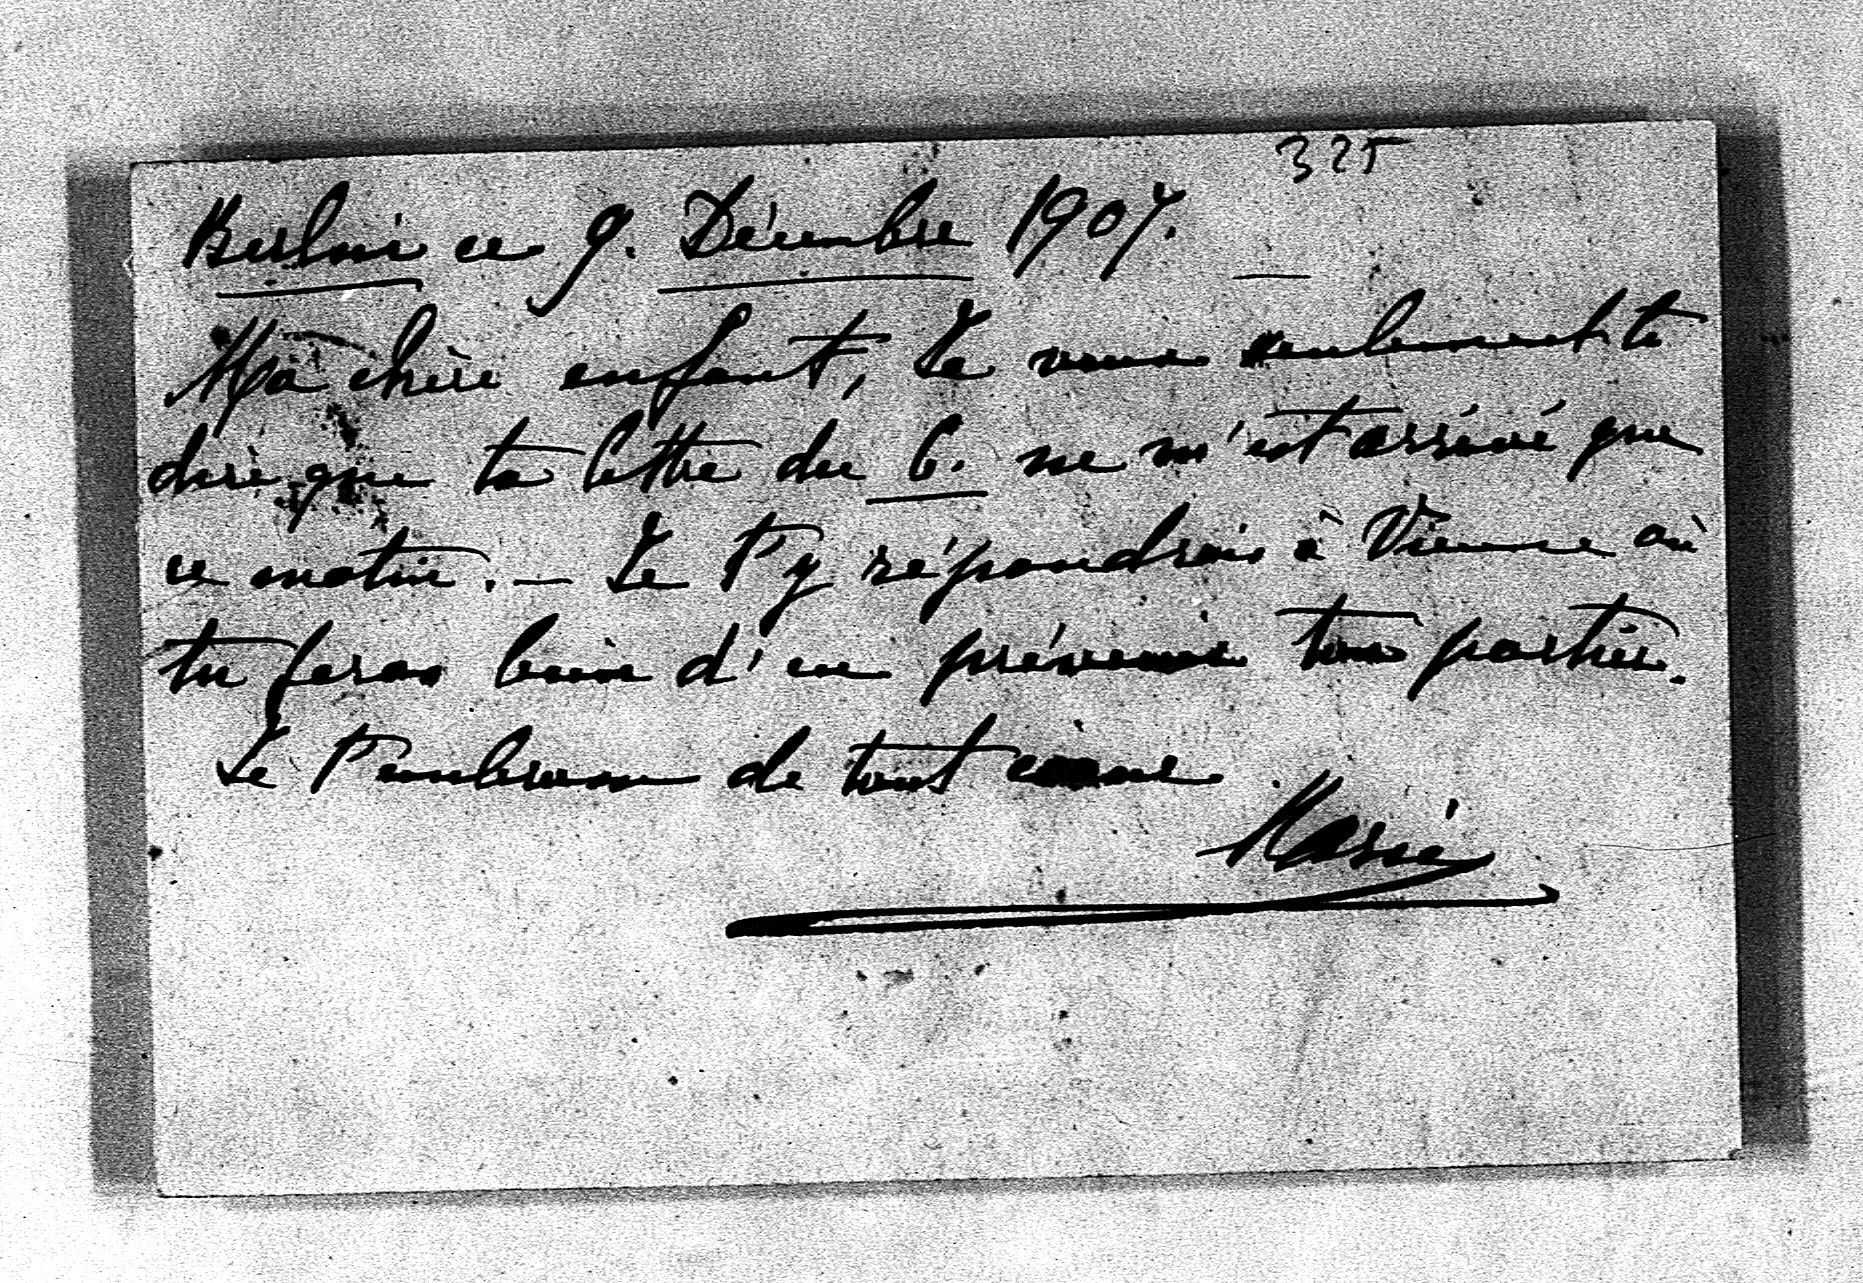 325
Berlin ce 9. Décembre 1907. —
Ma chère enfant, Je veux seulement te
dire que ta lettre du 6. ne m'est arrivé que
ce matin. — Je t'y répondrai à Vienne où
tu feras bien d'en prévenir ton portier.
Je t'embrasse de tout cœur
Marie